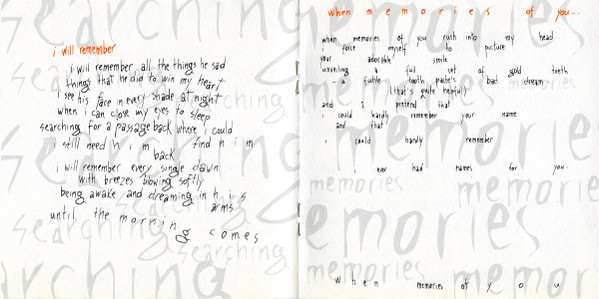 i will remember
i will remember all the things he said
things that he did to win my heart
i see his face in every shade at night
when i can close my eyes to sleep
searching for a passage back where i could
i still need him find him
back
i will remember every single dawn
with breezes blowing softly
being awake and dreaming in his
arms
until the morning comes
when memories of you...
when memories of you rush into my head
i force myself to picture
your adorable smile
unveiling a full set of gold teeth
- a futile tooth paste's bad dream -
(that's quite helpful)
and i pretend that
i could hardly remember your name
and that
i could hardly remember
i ever had names for you...
when memories of you
searching
searching
searching
searching
searching
searching
memories
memories
memories
memories
memories
memories
memories